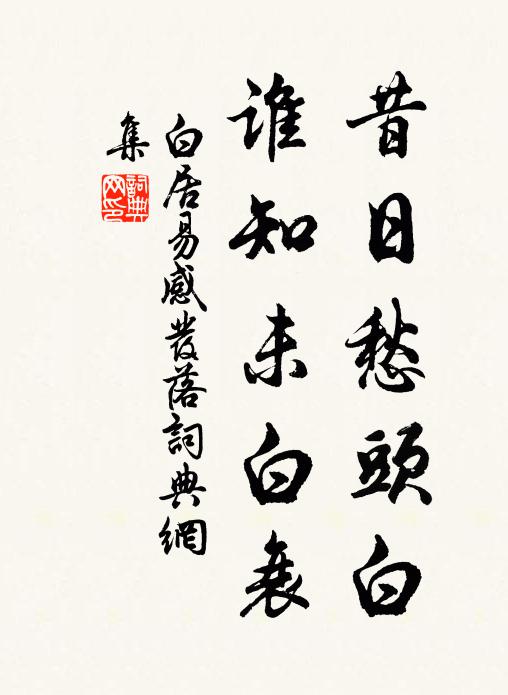 昔日愁頭白
誰知未白衰
白居易感發落詞典網
集
詞典
网印